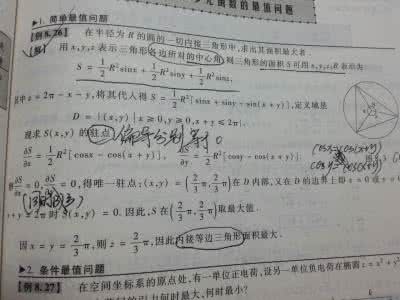 函数的最值问题
1. 简单最值问题
【例 8.26】 在半径为 R 的圆的一切内接三角形中,求出其面积最大者.
【解】 用 x,y,z 表示三角形各边所对的中心角,则三角形的面积 S 可用 x,y,z,R 表示为
S = 1/2 R² sinx + 1/2 R² siny + 1/2 R² sinz,
其中 z = 2π − x − y, 将其代入得 S = 1/2 R²[sinx + siny − sin(x + y)], 定义域是
D = {(x,y) | x ≥ 0, y ≥ 0, x + y ≤ 2π}.
现求 S(x,y) 的驻点: 偏导分别等于0
∂S/∂x = 1/2 R²[cosx − cos(x + y)], ∂S/∂y = 1/2 R²[cosy − cos(x + y)].
cosx = cos(x+y)
cosy = cos(x+y)
∂S/∂x = 0, ∂S/∂y = 0, 得唯一驻点: (x,y) = (2/3 π, 2/3 π), 在 D 内部, 又在 D 的边界上即 x = 0 或 y = 0
x + y = 2π 时 S(x,y) = 0. 因此, S 在 (2/3 π, 2/3 π) 取最大值.
因 x = y = 2/3 π, 则 z = 2/3 π, 因此内接等边三角形面积最大.
2. 条件最值问题
【例 8.27】 在空间坐标系的原点处, 有一单位正电荷, 设另一单位负电荷在椭圆 z = x² + y²
引力何时最大, 何时最小?